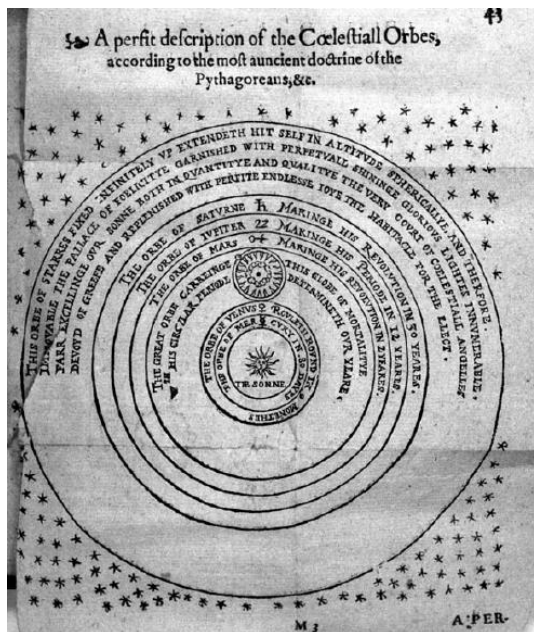 43
A perfit deſcription of the Cœleſtiall Orbes,
according to the moſt auncient doctrine of the
Pythagoreans, &c.
THIS ORBE OF STARRES FIXED INFINITELY VP EXTENDETH HIT SELF IN ALTITVDE SPHERICALLYE, AND THERFORE
IMMOVABLE THE PALLACE OF FOELICITYE GARNISHED WITH PERPETVALL SHININGE GLORIOVS LIGHTES INNVMERABLE.
FARR EXCELLINGE OVR SONNE BOTH IN QVANTITYE AND QVALITYE THE VERY COVRT OF COELESTIALL ANGELLES
DEVOYD OF GREEFE AND REPLENISHED WITH PERFITE ENDLESSE IOYE THE HABITACLE FOR THE ELECT.
THE ORBE OF SATVRNE ♄ MAKINGE HIS REVOLVTION IN 30 YEARES.
THE ORBE OF IVPITER ♃ MAKINGE HIS PERIODE IN 12 YEARES.
THE ORBE OF MARS ♂ MAKINGE HIS REVOLVTION IN 2 YEARES.
THE GREAT ORBE CARREINGE THIS GLOBE OF MORTALITYE
IN HIS CIRCVLAR PERIODE DETERMINETH OVR YEARE.
THE ORBE OF VENVS ♀ IN 9 MONETHES
THE ORBE OF MERCVRY IN 80 DAYES
THE SONNE
M 3
A PER-